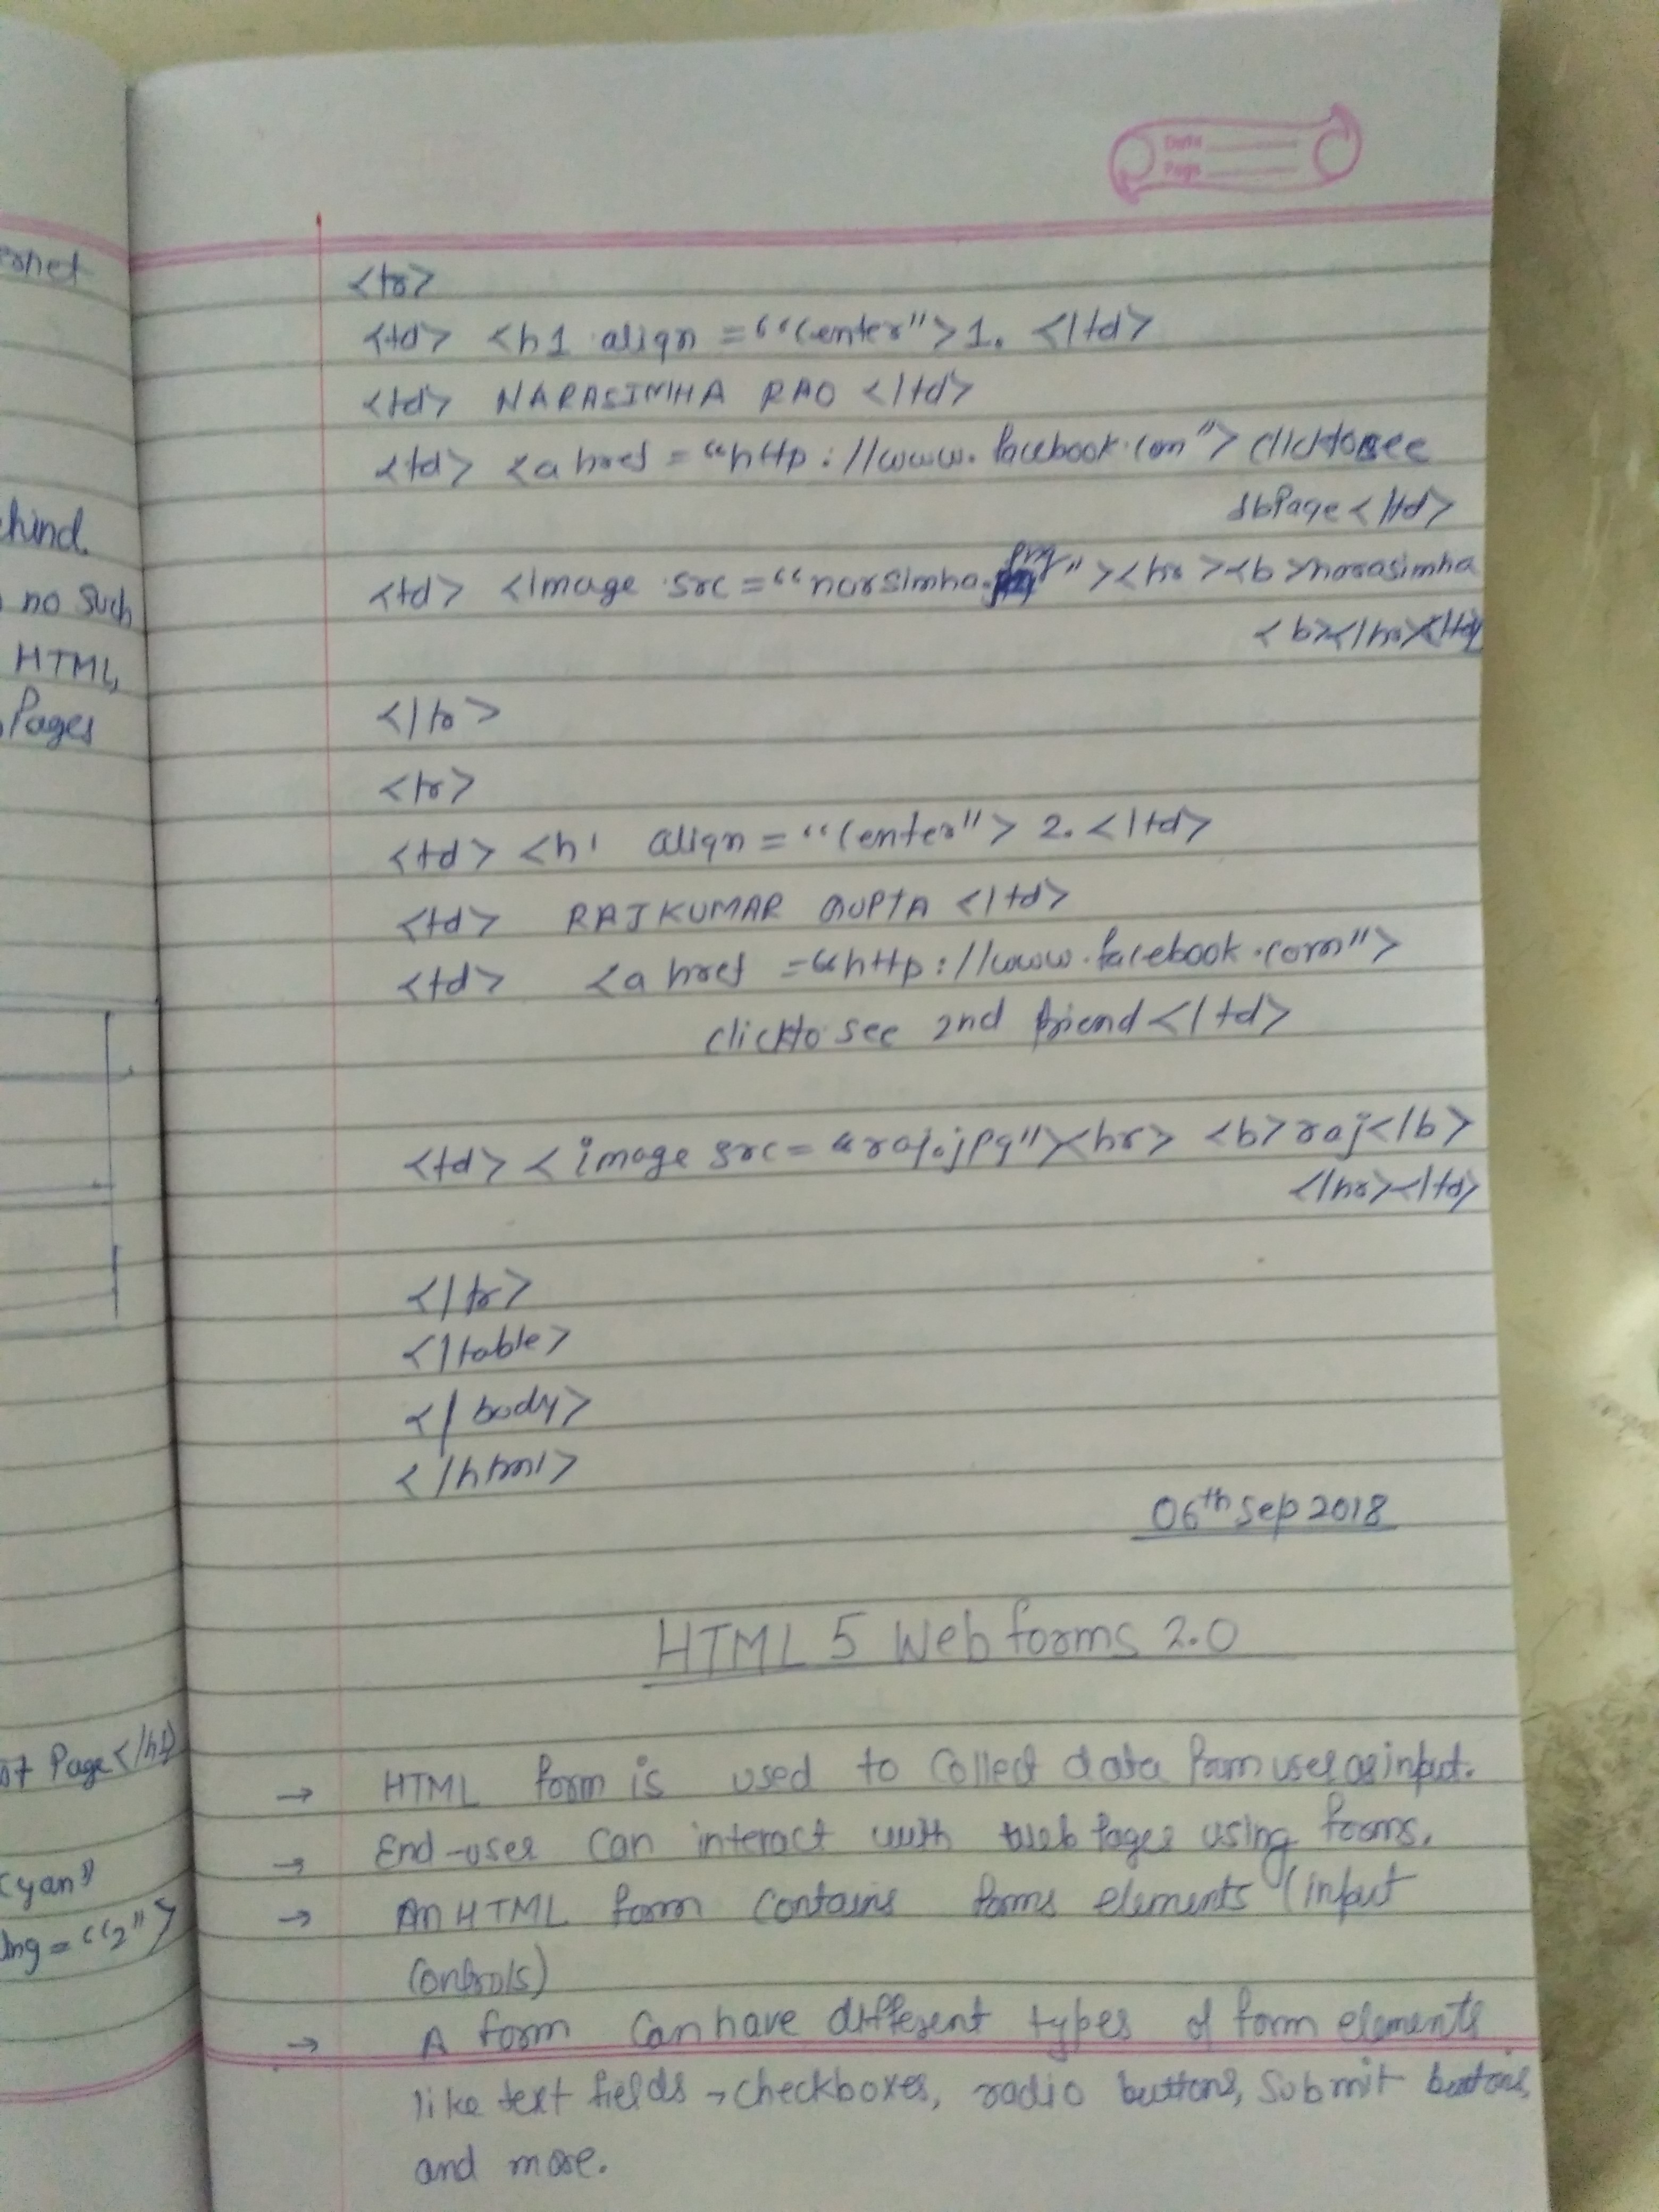 ernet
ehind
no such
HTML,
Pages
ot Page</h1>
cyan"
ing = "2">
Date
Page
<tr>
<td> <h1 align = "center">1. </td>
<td> NARASIMHA RAO </td>
<td> <a href = "http://www.facebook.com"> clicktosee
fbPage </td>
<td> <image src = "narsimha.png"><hr><b>narasimha
<b></hr></td>
</tr>
<tr>
<td> <h1 align = "center"> 2. </td>
<td> RAJKUMAR GUPTA </td>
<td> <a href = "http://www.facebook.com">
clickto see 2nd friend </td>
<td> <image src = "raj.jpg"><hr> <b>raj</b>
</hr></td>
</tr>
</table>
</body>
</html>
06th Sep 2018
HTML 5 Web forms 2.0
→ HTML form is used to collect data from user as input.
→ End-user can interact with web pages using forms.
→ An HTML form contains forms elements (input
controls)
→ A form can have different types of form elements
like text fields, checkboxes, radio buttons, submit buttons,
and more.